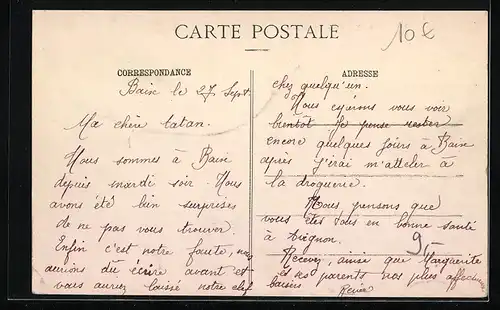 CARTE POSTALE
10 €
CORRESPONDANCE
Baix le 27 Sept
Ma chère tatan.
Nous sommes à Baix
depuis mardi soir. Nous
avons été bien surprises
de ne pas vous trouver.
Enfin c'est notre faute, nous
aurions dû écrire avant et
vous auriez laissé notre clef
ADRESSE
chez quelqu'un.
Nous espérons vous voir
bientôt. Je pense rester
encore quelques jours à Baix
après j'irai m'atteler à
la droguerie.
Nous pensons que
vous êtes tous en bonne santé
à Avignon.
Recevez, ainsi que Marguerite
et ses parents nos plus affectueux
baisers